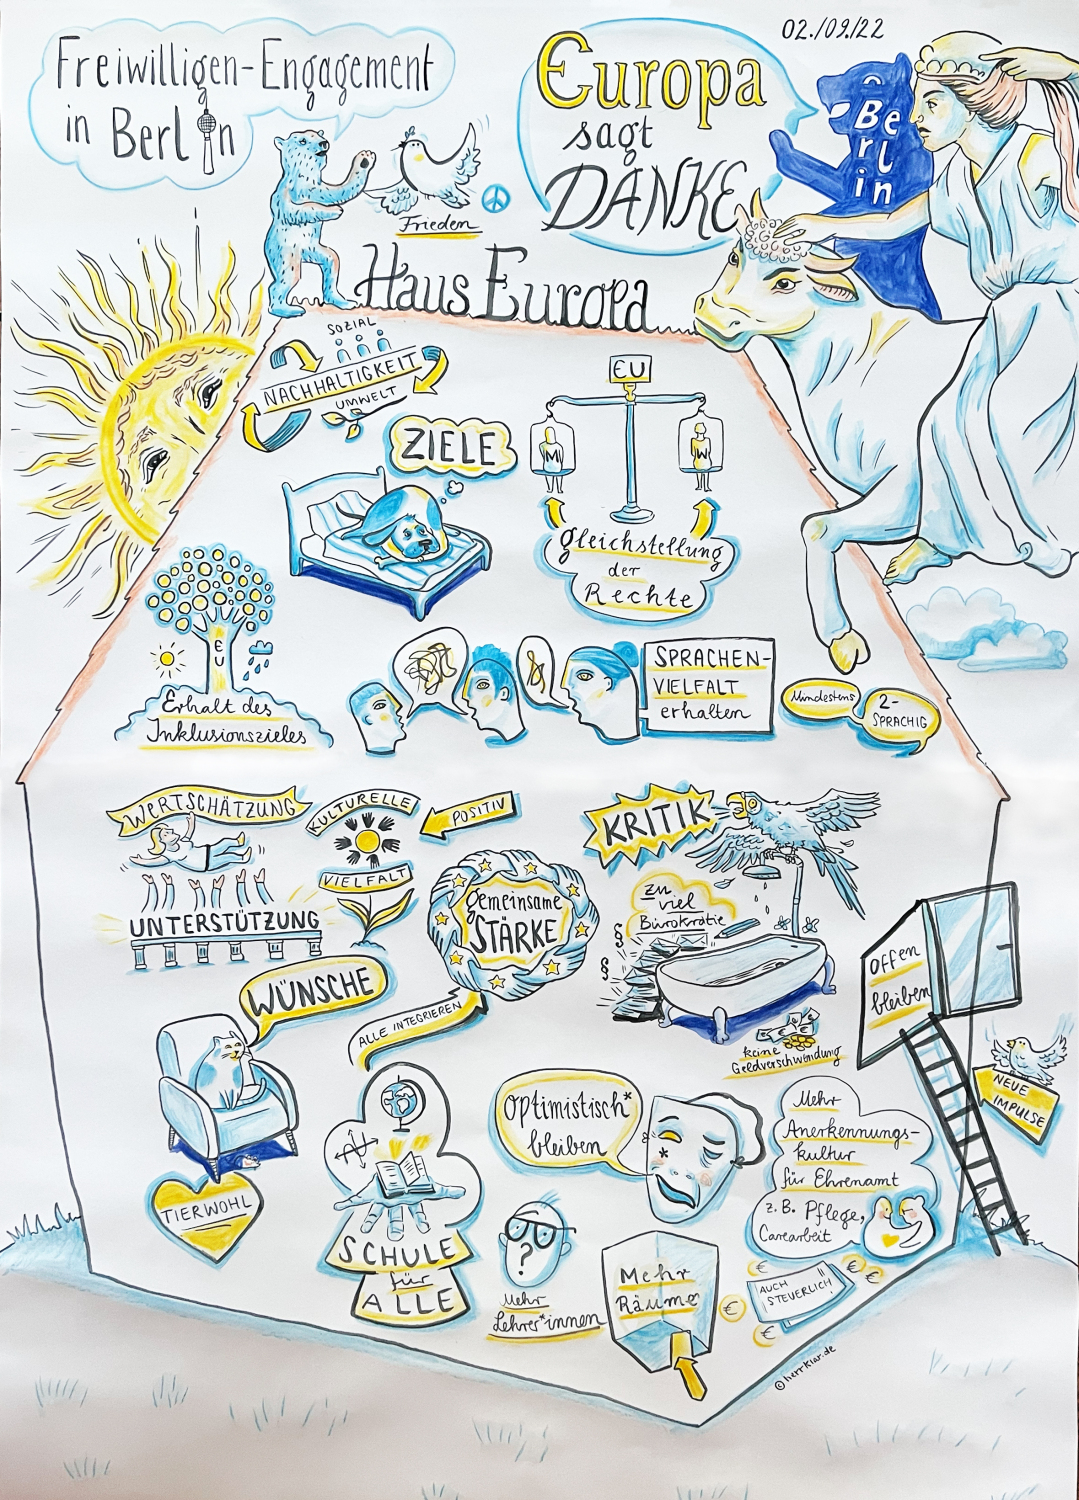 02./09./22
Freiwilligen-Engagement
in Berlin
Europa
sagt
DANKE
Berlin
Frieden
Haus Europa
SOZIAL
NACHHALTIGKEIT
UMWELT
ZIELE
EU
M
W
Gleichstellung
der
Rechte
EU
Erhalt des
Inklusionszieles
SPRACHEN-
VIELFALT
erhalten
Mindestens
2-
SPRACHIG
WERTSCHÄTZUNG
UNTERSTÜTZUNG
KULTURELLE
VIELFALT
POSITIV
gemeinsame
STÄRKE
ALLE INTEGRIEREN
KRITIK
zu
viel
Bürokratie
§
§
keine
Geldverschwendung
offen
bleiben
NEUE
IMPULSE
WÜNSCHE
TIERWOHL
SCHULE
für
ALLE
Optimistisch*
bleiben
*
?
Mehr
Lehrer*innen
Mehr
Räume
Mehr
Anerkennungs-
kultur
für Ehrenamt
z.B. Pflege,
Carearbeit
"AUCH
STEUERLICH"
€
€
€
€
€
© herrKlar.de